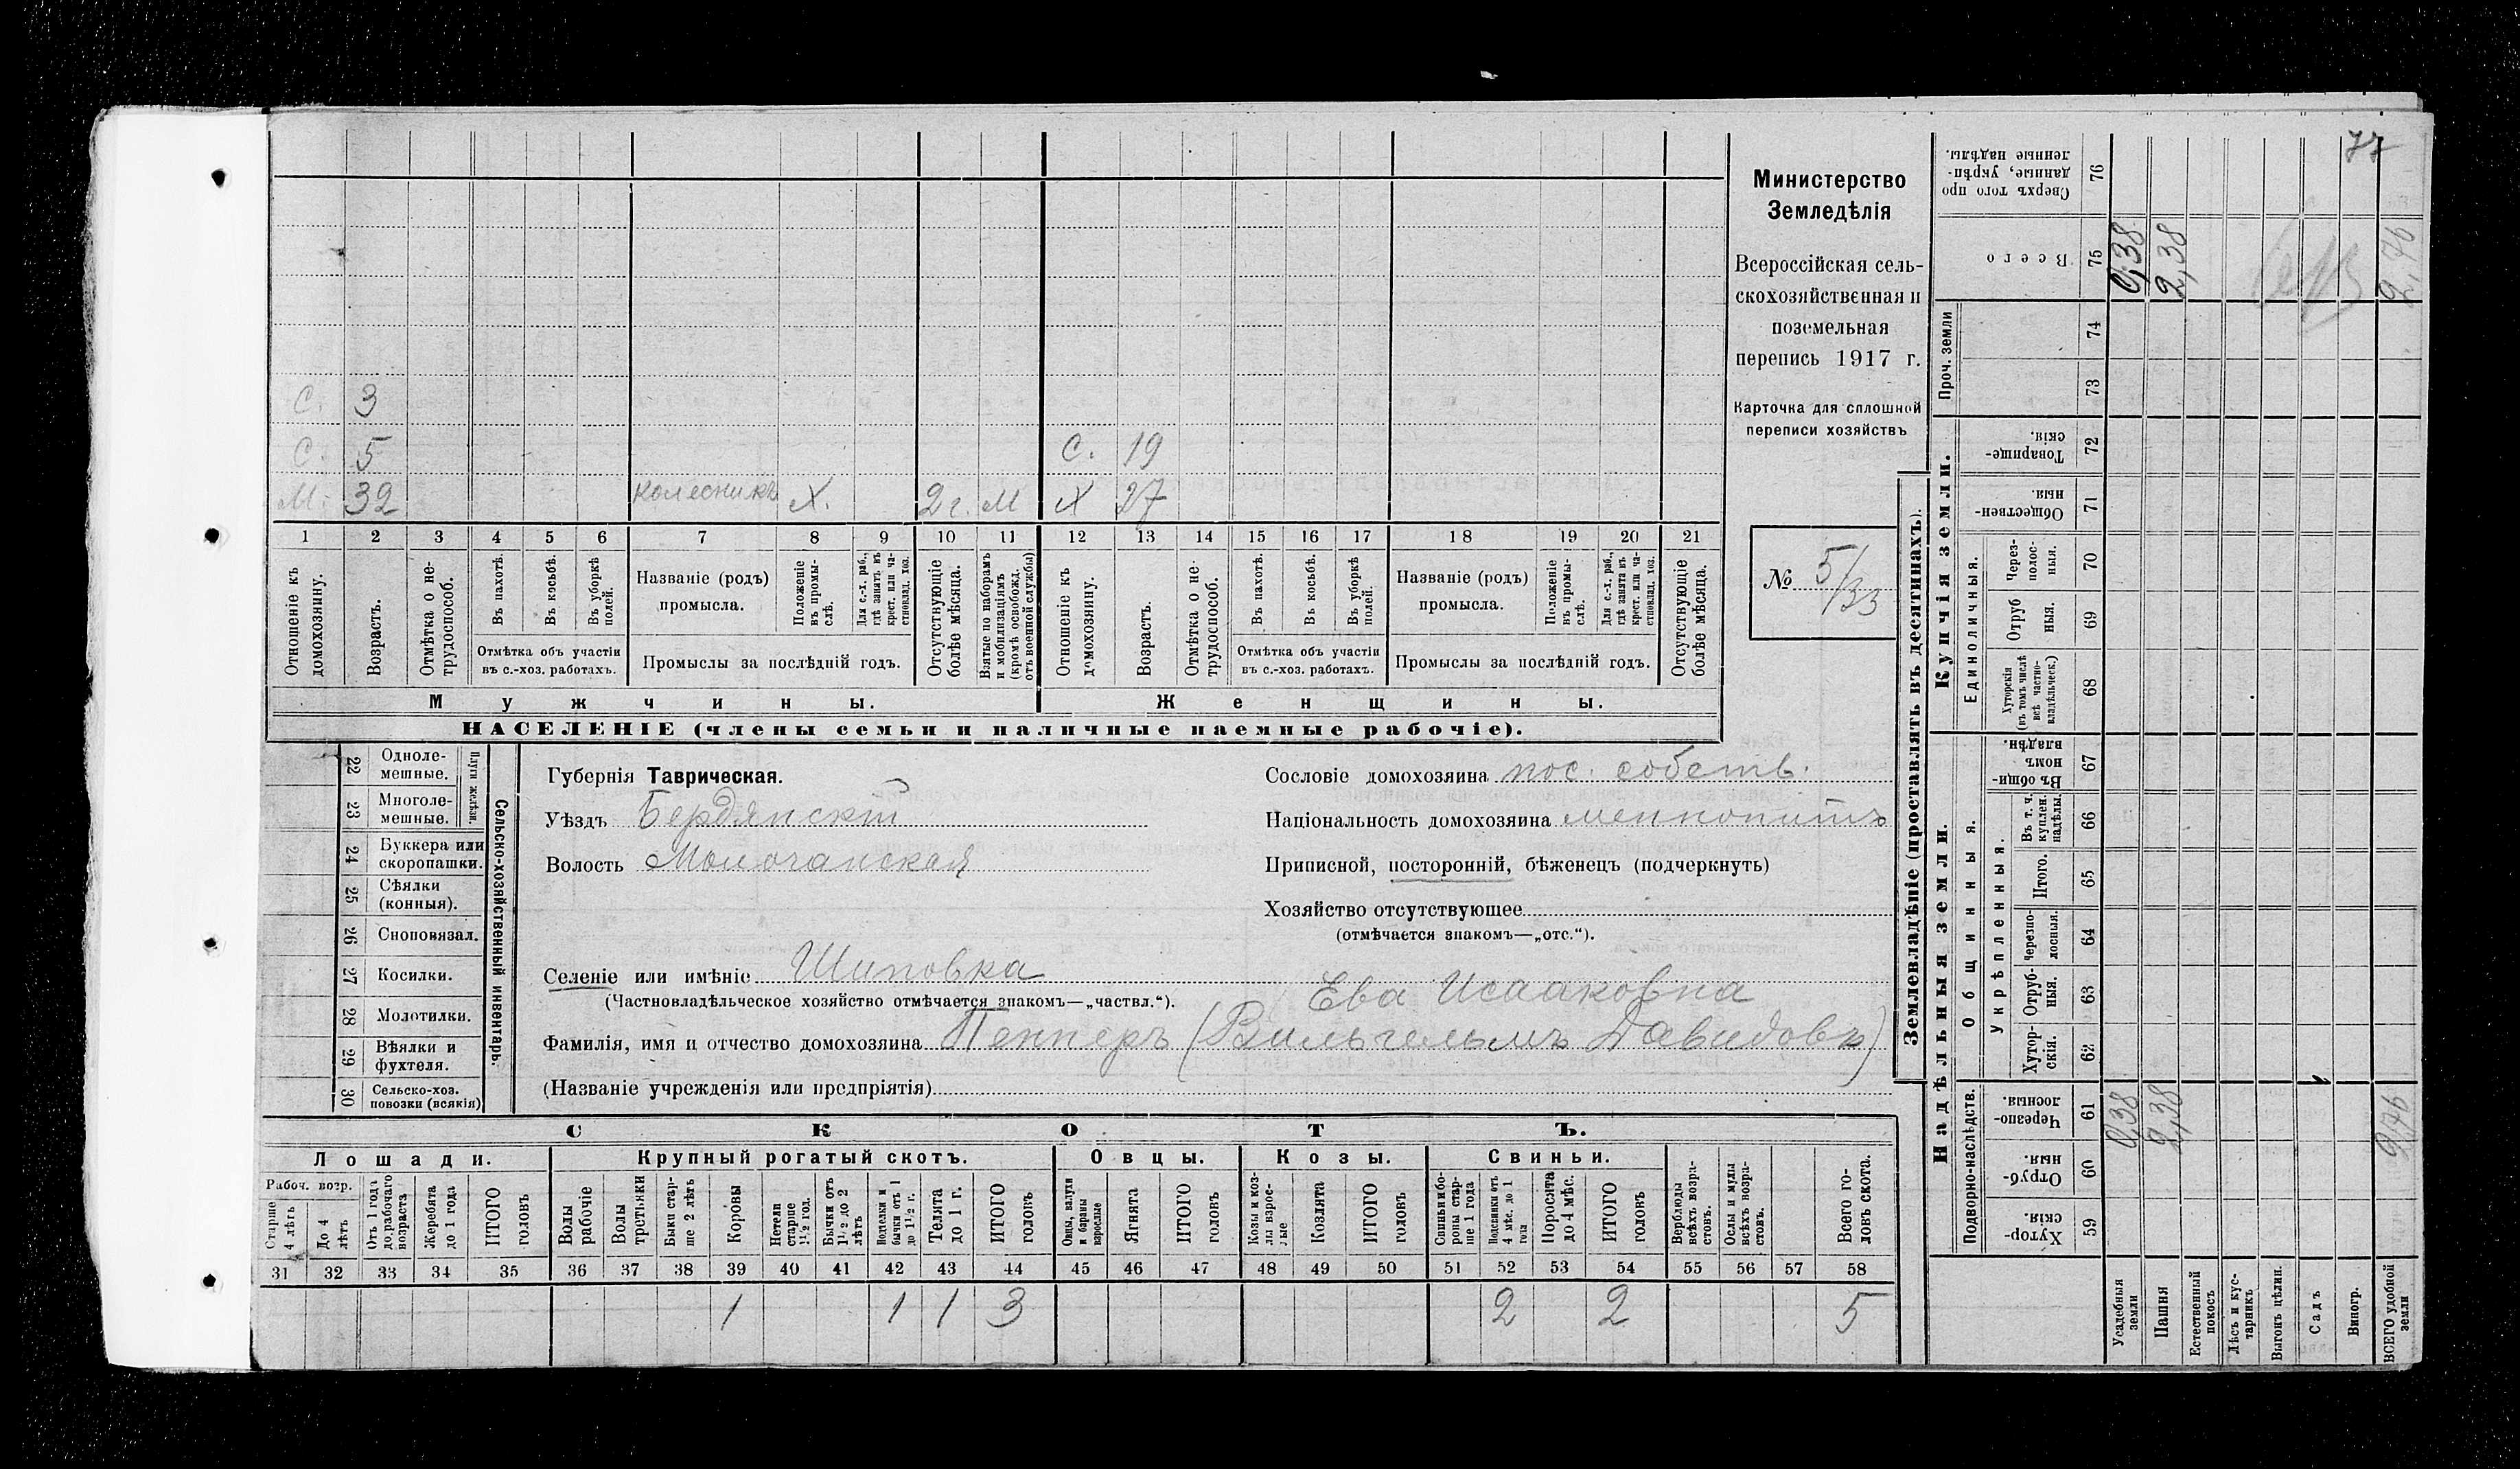 77
Министерство
Земледѣлія
Всероссійская сель-
скохозяйственная и
поземельная
перепись 1917 г.
Карточка для сплошной
переписи хозяйствъ
№ 5/33
С. 3
С. 5 С. 19
М. 32 колесникъ Х. 2 г. М Х 27
1 2 3 4 5 6 7 8 9 10 11 12 13 14 15 16 17 18 19 20 21
Отношеніе къ домохозяину.
Возрастъ.
Отмѣтка о не-трудоспособ.
Въ пахотѣ.
Въ косьбѣ.
Въ уборкѣ полей.
Отмѣтка объ участіи въ с.-хоз. работахъ.
Названіе (родъ) промысла.
Положеніе въ промы-слѣ.
Для с.-х. раб., гдѣ занятъ въ крест. или ча-стновлад. хоз.
Промыслы за послѣдній годъ.
Отсутствующіе болѣе мѣсяца.
Взятые по наборамъ и мобилизаціямъ (кромѣ освобожд. отъ военной службы)
Отношеніе къ домохозяину.
Возрастъ.
Отмѣтка о не-трудоспособ.
Въ пахотѣ.
Въ косьбѣ.
Въ уборкѣ полей.
Отмѣтка объ участіи въ с.-хоз. работахъ.
Названіе (родъ) промысла.
Положеніе въ промы-слѣ.
Для с.-х. раб., гдѣ занята въ крест. или ча-стновлад. хоз.
Промыслы за послѣдній годъ.
Отсутствующіе болѣе мѣсяца.
Мужчины. Женщины.
НАСЕЛЕНІЕ (члены семьи и наличные наемные рабочіе).
Сельско-хозяйственный инвентарь.
Плуги желѣзн.
22 Одноле-мешные.
23 Многоле-мешные.
24 Буккера или скоропашки.
25 Сѣялки (конныя).
26 Сноповязал.
27 Косилки.
28 Молотилки.
29 Вѣялки и фухтеля.
30 Сельско-хоз. повозки (всякія)
Губернія Таврическая.
Уѣздъ Бердянскій
Волость Молочанская
Сословіе домохозяина пос. собств.
Національность домохозяина меннонитъ
Приписной, посторонній, бѣженецъ (подчеркнуть)
Хозяйство отсутствующее
(отмѣчается знакомъ—„отс.“).
Селеніе или имѣніе Шиповка
(Частновладѣльческое хозяйство отмѣчается знакомъ—„частвл.“).
Ева Исааковна
Фамилія, имя и отчество домохозяина Пеннеръ (Вильгельмъ Давидовъ)
(Названіе учрежденія или предпріятія)
СКОТЪ.
Лошади. Крупный рогатый скотъ. Овцы. Козы. Свиньи.
Рабоч. возр.
Старше 4 лѣтъ
До 4 лѣтъ
Отъ 1 года до рабочаго возраста
Жеребята до 1 года
ИТОГО головъ
Волы рабочіе
Волы третьяки
Быки стар-ше 2 лѣтъ
Коровы
Нетели старше 1½ год.
Бычки отъ 1½ до 2 лѣтъ
Подтелки и бычки отъ 1 до 1½ г.
Телята до 1 г.
ИТОГО головъ
Овцы, валухи и бараны взрослые
Ягнята
ИТОГО головъ
Козы и коз-лы взрос-лые
Козлята
ИТОГО головъ
Свиньи и бо-ровы стар-ше 1 года
Подсвинки отъ 4 мѣс. до 1 года
Поросята до 4 мѣс.
ИТОГО головъ
Верблюды всѣхъ возра-стовъ.
Ослы и мулы всѣхъ возра-стовъ.
Всего го-ловъ скота.
31 32 33 34 35 36 37 38 39 40 41 42 43 44 45 46 47 48 49 50 51 52 53 54 55 56 57 58
1 1 1 3 2 2 5
Землевладѣніе (проставлять въ десятинахъ).
Сверхъ того про данные, укрѣп-ленные надѣлы. 76
Всего 75 0,38 2,38 2,76
Проч. земли 74 73
Купчія земли.
Товарище-скія. 72
Обществен-ныя. 71
Единоличныя.
Через-полос-ныя. 70
Отруб ныя. 69
Хуторскія (въ томъ числѣ всѣ частно-владѣльческ.) 68
Надѣльныя земли.
Общинныя.
Въ общин-номъ владѣн. 67
Укрѣпленныя.
Въ т. ч. куплен. надѣлы. 66
Итого. 65
Черезпо-лосныя. 64
Отруб-ныя. 63
Хутор-скія. 62
Подворно-наслѣдств.
Черезпо-лосныя. 61 0,38 2,38 2,76
Отруб-ныя. 60
Хутор-скія. 59
Усадебныя земли
Пашня
Естественный покосъ
Лѣсъ и кус-тарникъ
Выгонъ цѣлин.
Садъ
Виногр.
ВСЕГО удобной земли